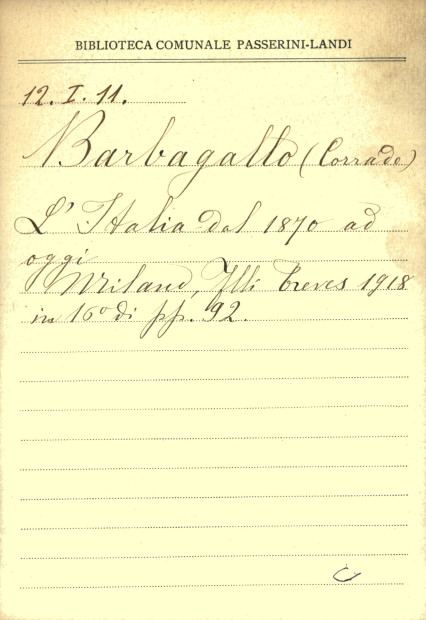 BIBLIOTECA COMUNALE PASSERINI-LANDI
12. I. 11.
Barbagallo (Corrado)
L' Italia dal 1870 ad
oggi
Milano, Flli Treves 1918
in 16º di pp. 92.